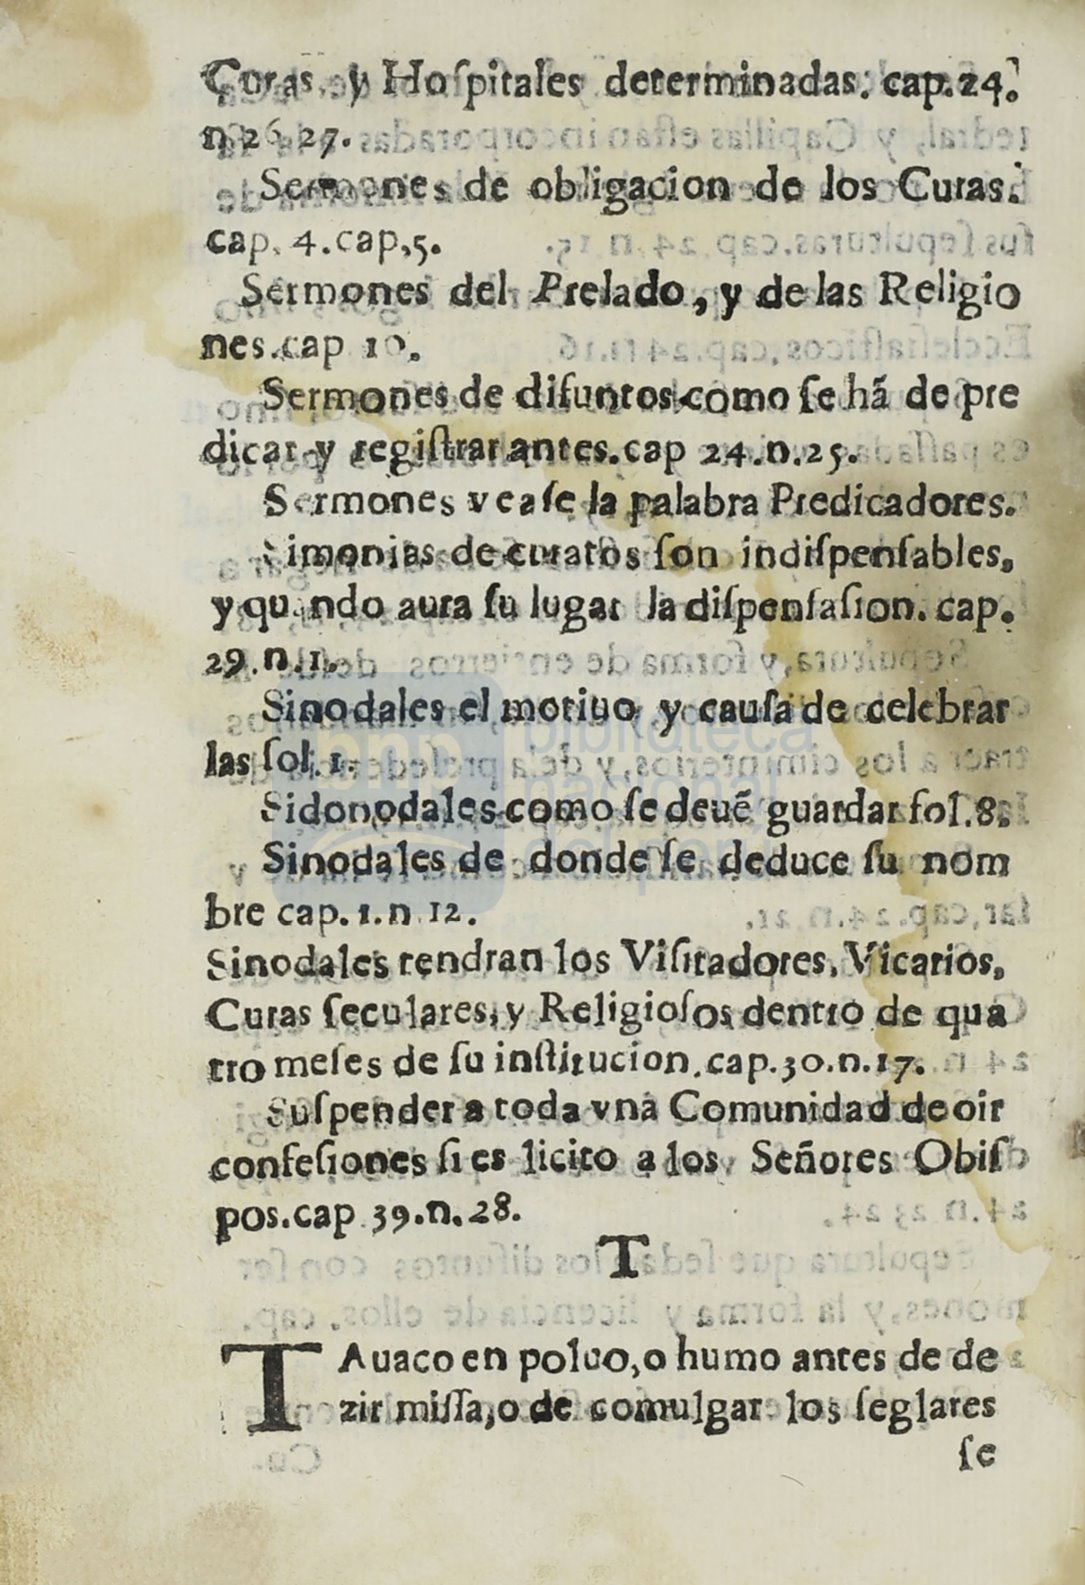 Curas, y Hoſpitales determinadas. cap. 24.
n. 26. 27.
Sermones de obligacion de los Curas.
cap. 4. cap, 5.
Sermones del Prelado, y de las Religio
nes. cap 10.
Sermones de difuntos como ſe hã de pre
dicar y regiſtrar antes. cap 24. n. 25.
Sermones veaſe la palabra Predicadores.
Simonias de curatos ſon indiſpenſables,
y quando aura ſu lugar la diſpenſaſion. cap.
29. n. 1.
Sinodales el motiuo y cauſa de celebrar
las fol. 1.
Sidonodales como ſe deuẽ guardar fol. 8.
Sinodales de donde ſe deduce ſu nom
bre cap. 1. n. 12.
Sinodales tendran los Viſitadores, Vicarios,
Curas ſeculares, y Religioſos dentro de qua
tro meſes de ſu inſtitucion. cap. 30. n. 17.
Suſpender a toda vna Comunidad de oir
confeſiones ſi es licito a los Señores Obiſ
pos. cap 39. n. 28.
T
TAuaco en poluo, o humo antes de de
zir miſſa, o de comulgar los ſeglares
ſe